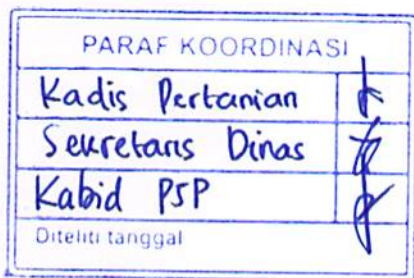 PARAF KOORDINASI
Kadis Pertanian
Sekretaris Dinas
Kabid PSP
Diteliti tanggal